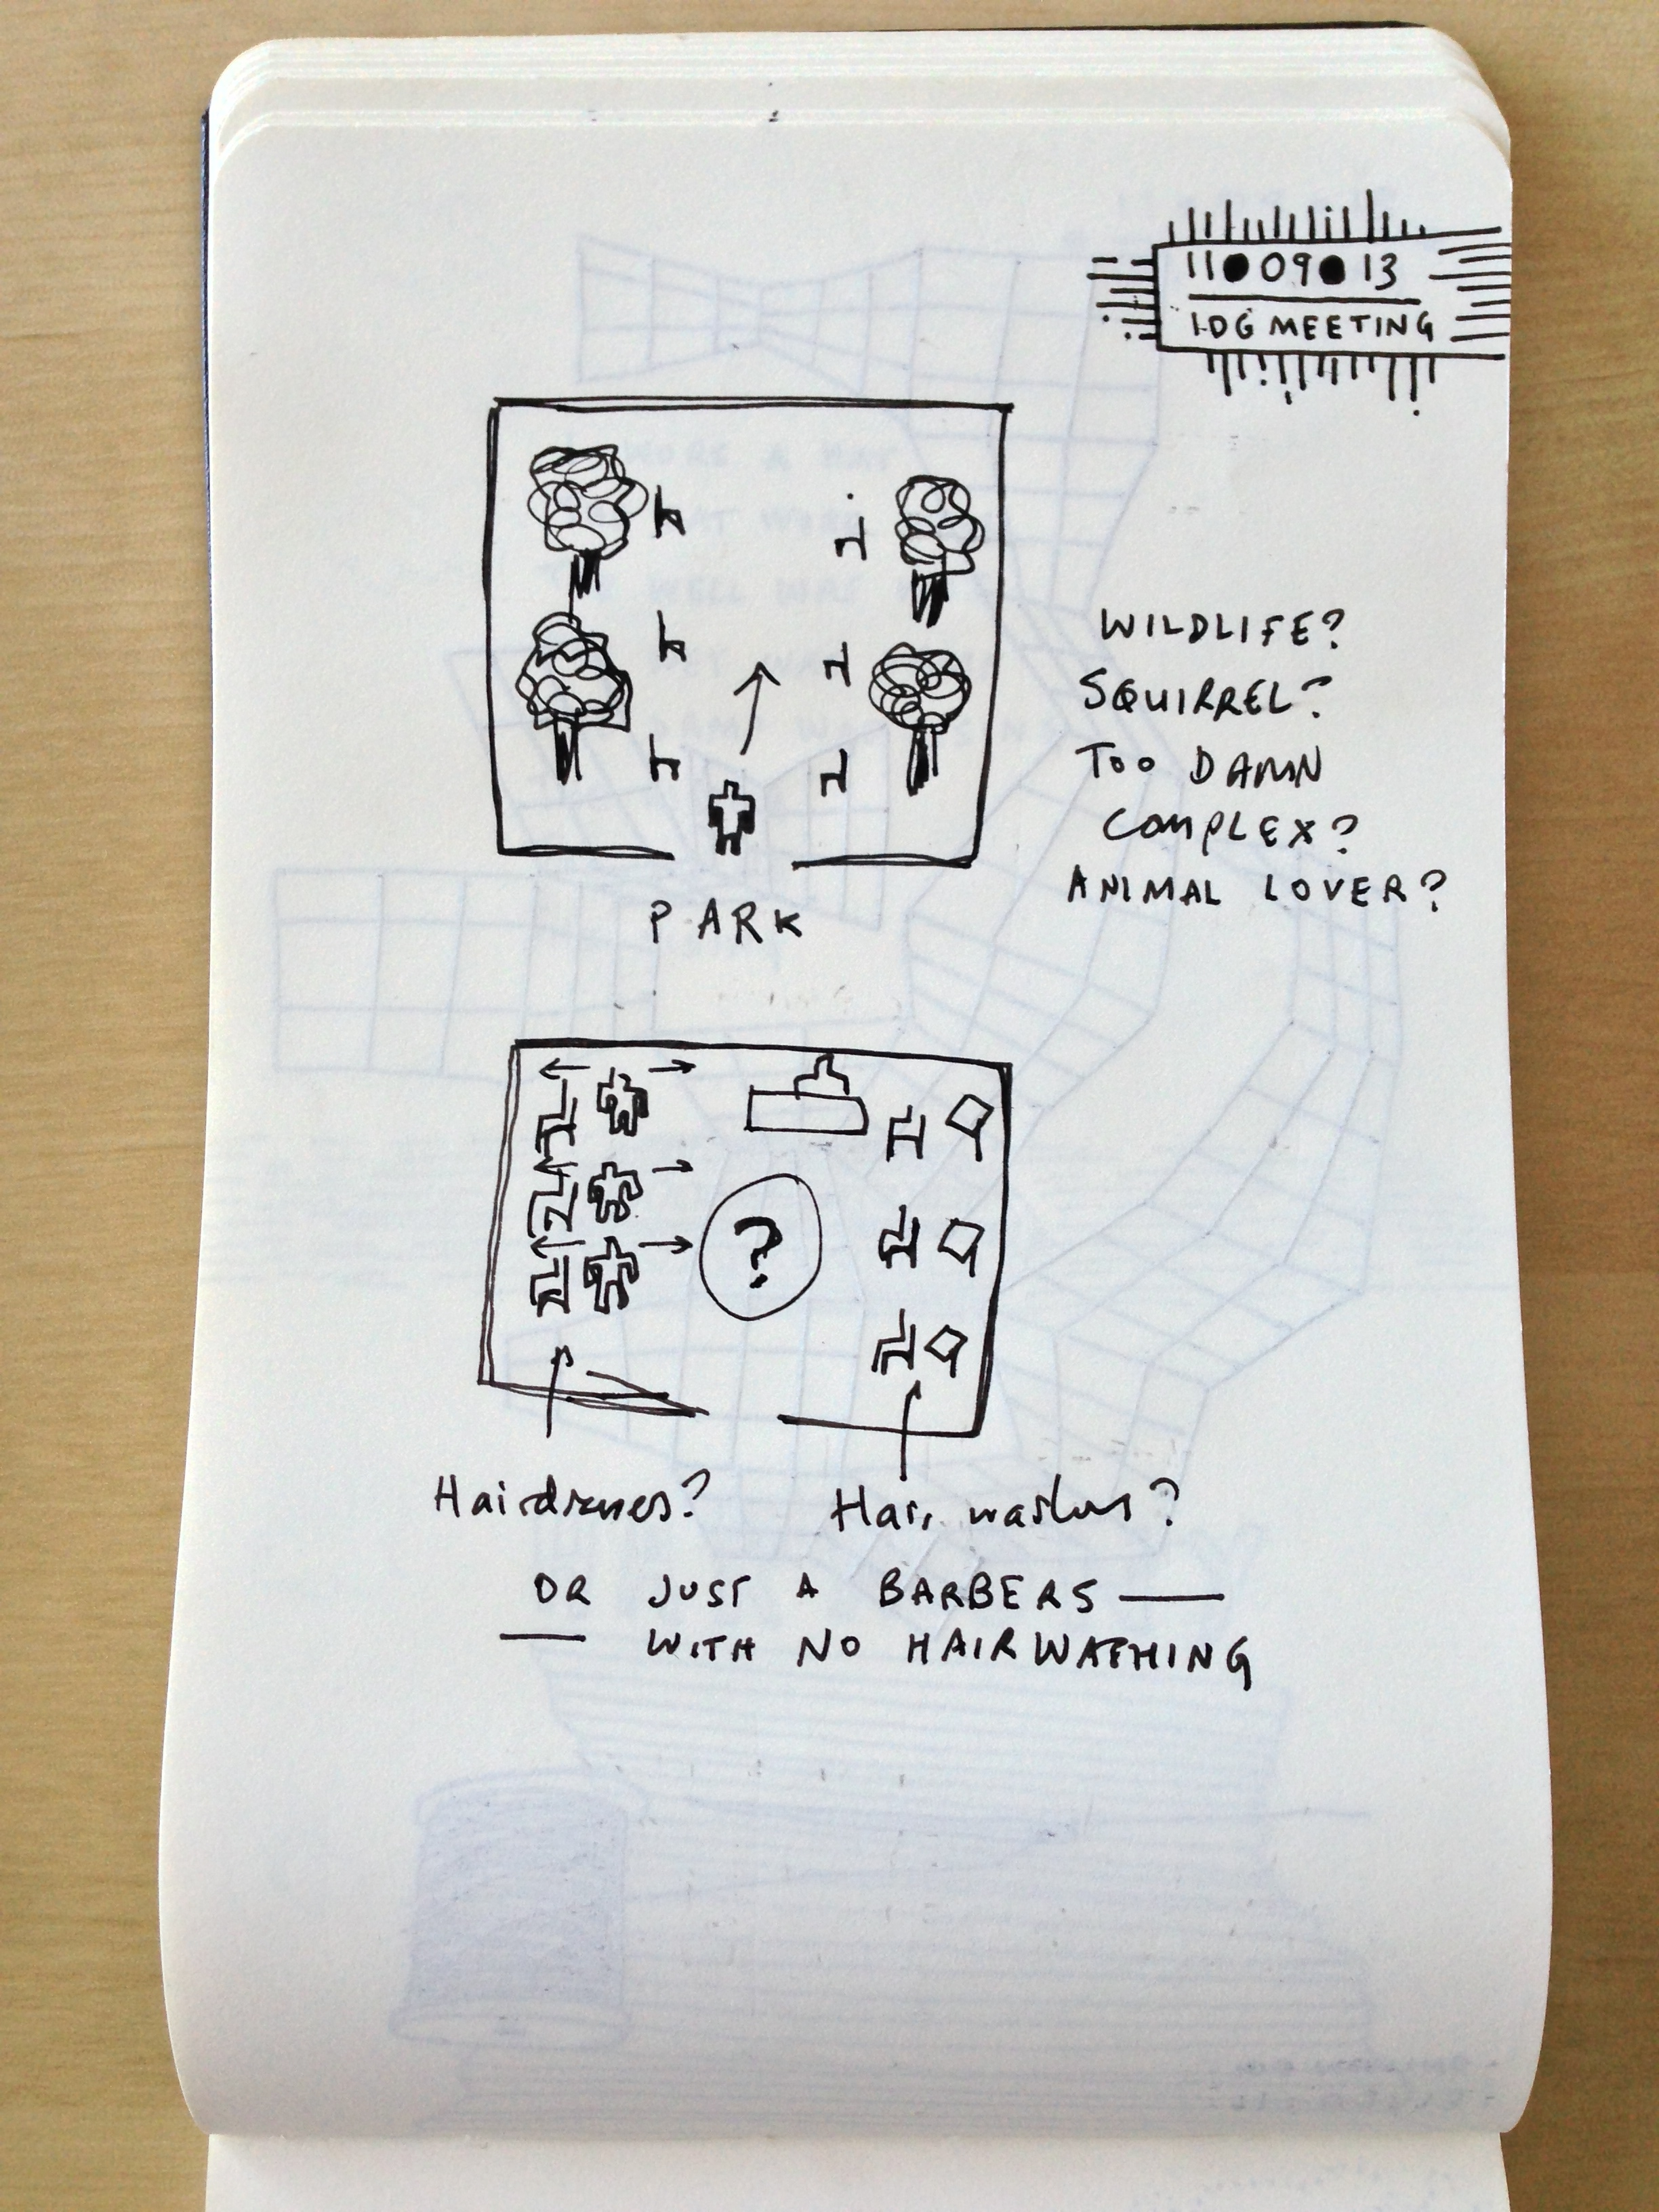 11●09●13
IDG MEETING
WILDLIFE?
SQUIRREL?
TOO DAMN
COMPLEX?
ANIMAL LOVER?
PARK
?
Hairdressers? Hair washers?
OR JUST A BARBERS —
— WITH NO HAIRWASHING